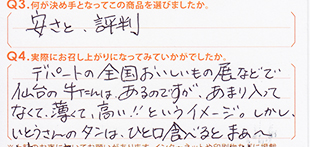 Q3.何が決め手となってこの商品を選びましたか。
安さと、評判
Q4.実際にお召し上がりになってみていかがでしたか。
デパートの全国おいしいもの展などで
仙台の牛たんは、あるのですが、あまり入って
なくて、薄くて、高い!!というイメージ。しかし、
いとうさんのタンは、ひと口食べるとまぁ〜